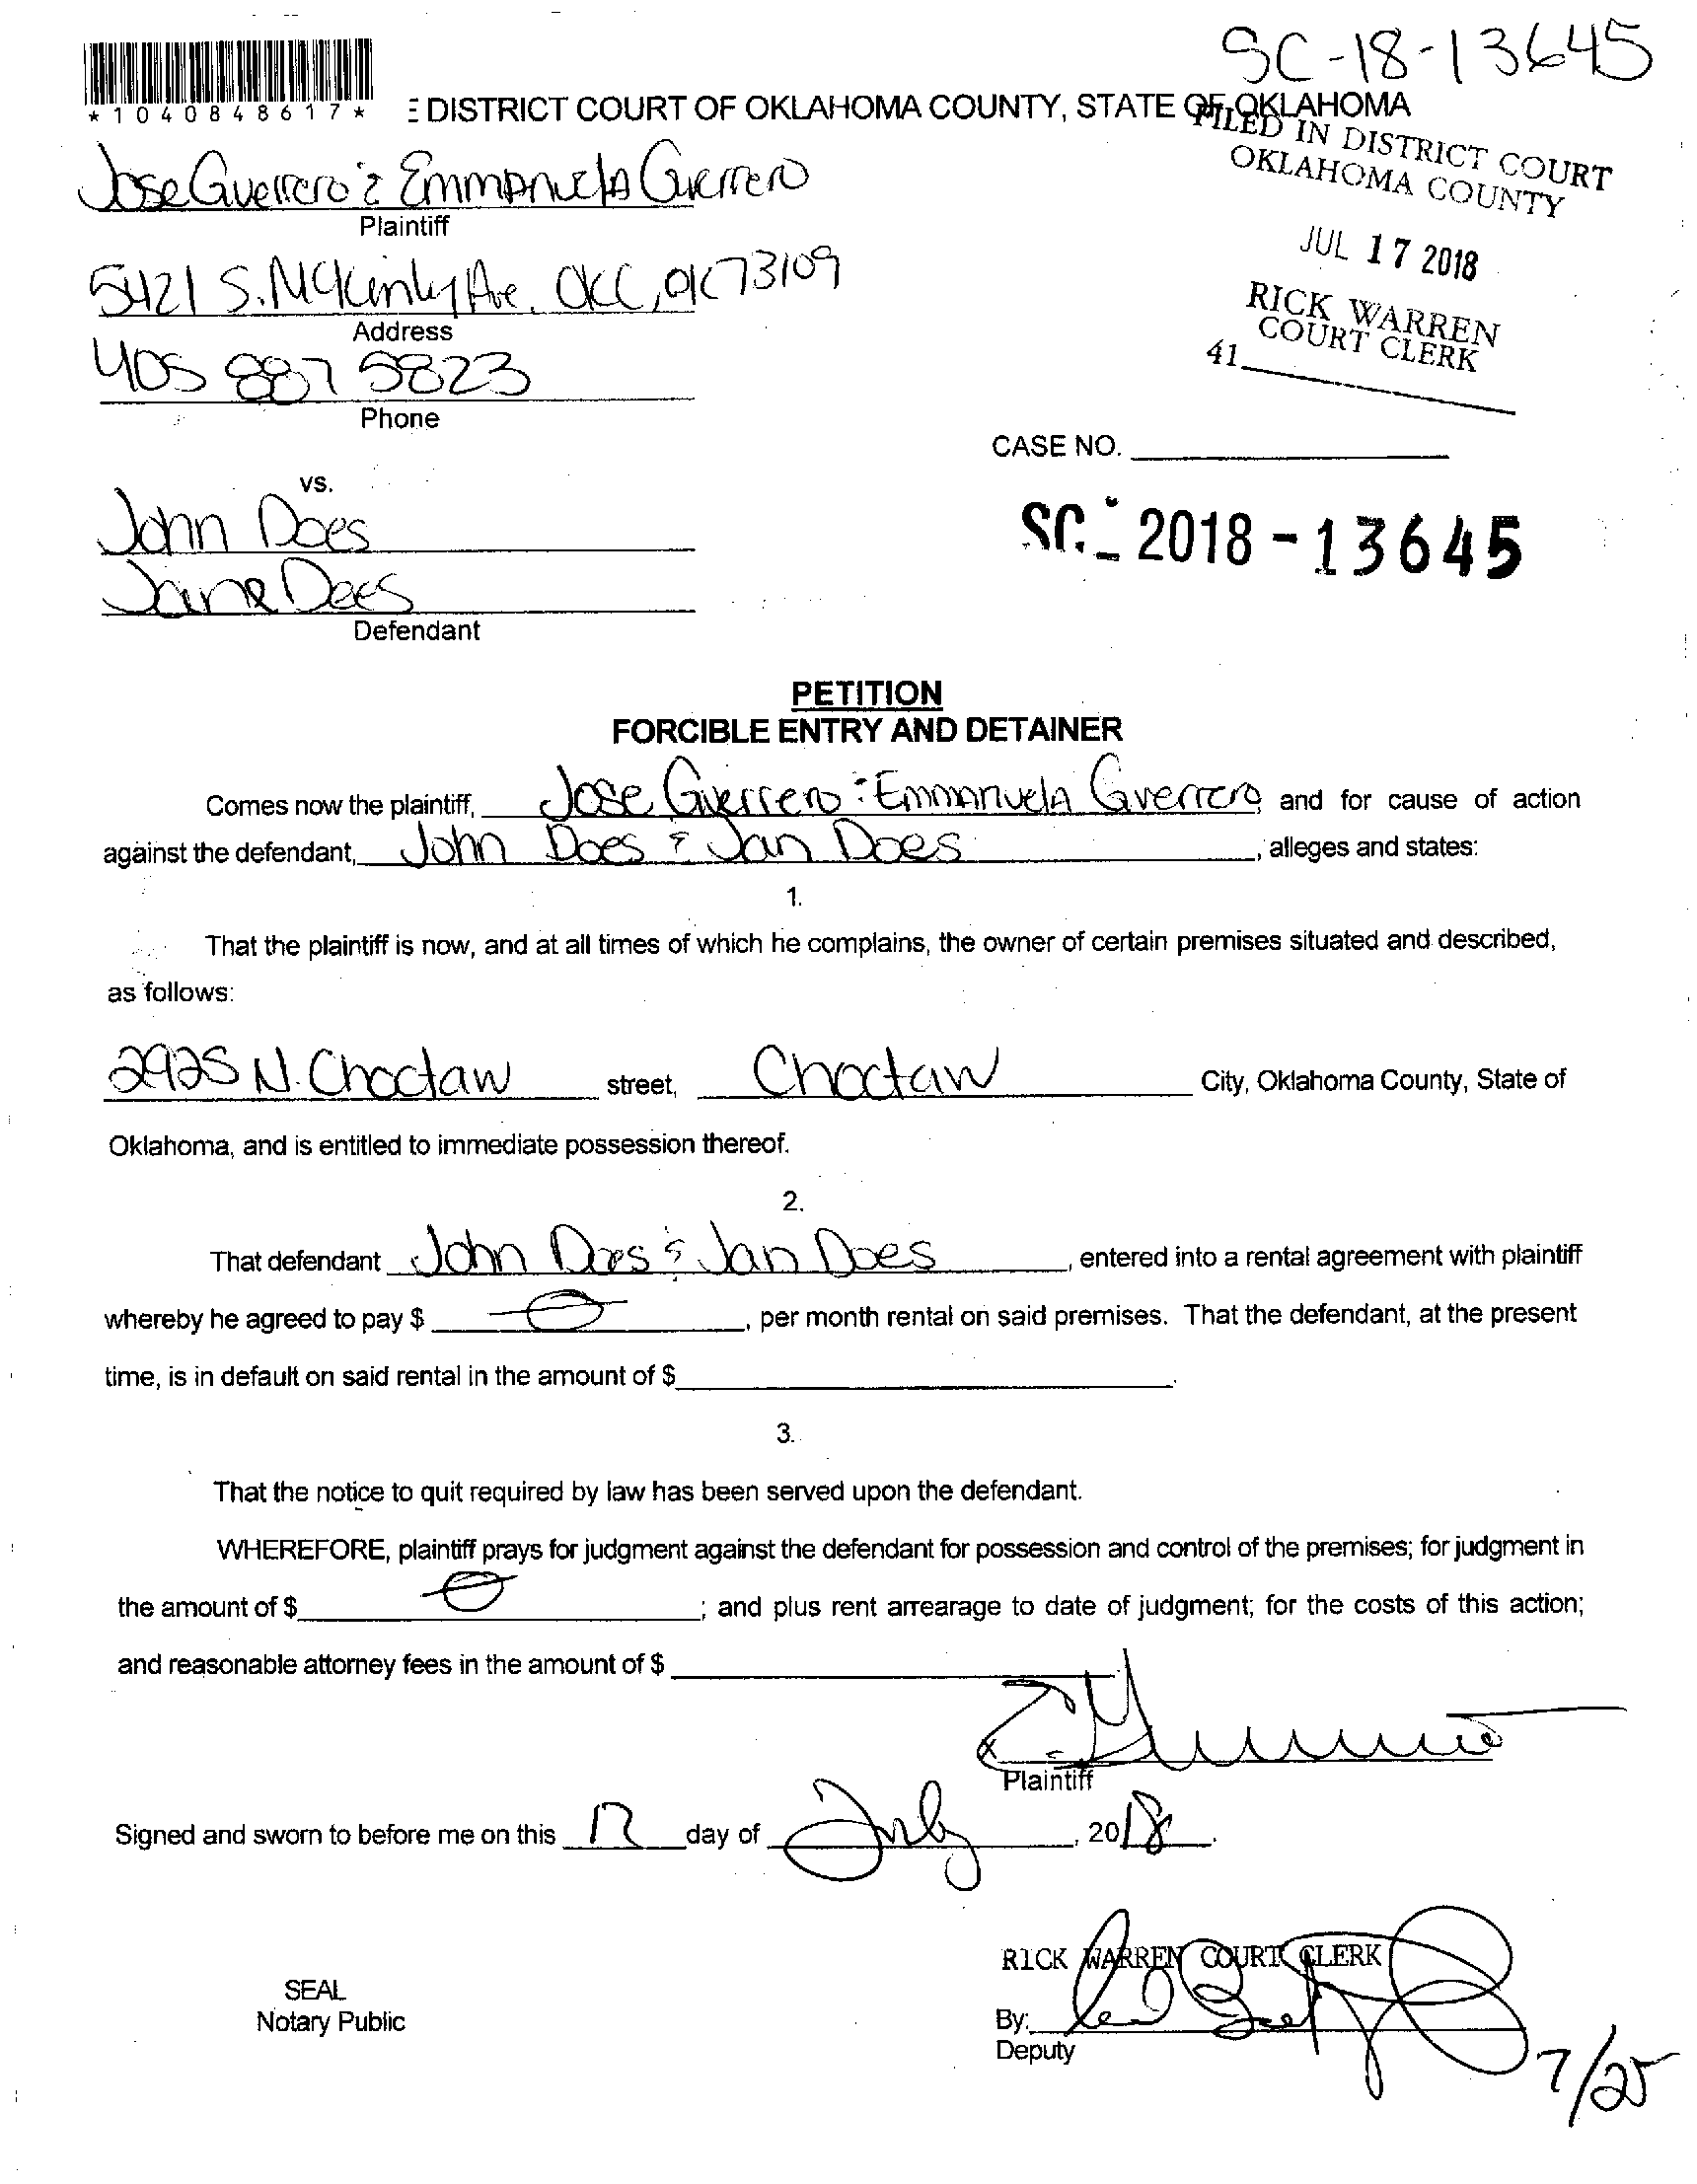 SC-18-13645
*1040848617*
E DISTRICT COURT OF OKLAHOMA COUNTY, STATE OF OKLAHOMA
FILED IN DISTRICT COURT
OKLAHOMA COUNTY
Jose Guerrero & Emmanuela Guerrero
Plaintiff
JUL 17 2018
5421 S. McKinly Ave. OKC, OK 73109
Address
RICK WARREN
COURT CLERK
41
405 887 5823
Phone
CASE NO.
vs.
John Does
SC - 2018 - 13645
Jane Does
Defendant
PETITION
FORCIBLE ENTRY AND DETAINER
Comes now the plaintiff, Jose Guerrero & Emmanuela Guerrero and for cause of action
against the defendant, John Does & Jan Does, alleges and states:
1.
That the plaintiff is now, and at all times of which he complains, the owner of certain premises situated and described,
as follows:
2925 N. Choctaw street, Choctaw City, Oklahoma County, State of
Oklahoma, and is entitled to immediate possession thereof.
2.
That defendant John Does & Jan Does, entered into a rental agreement with plaintiff
whereby he agreed to pay $ 0, per month rental on said premises. That the defendant, at the present
time, is in default on said rental in the amount of $.
3.
That the notice to quit required by law has been served upon the defendant.
WHEREFORE, plaintiff prays for judgment against the defendant for possession and control of the premises; for judgment in
the amount of $ 0; and plus rent arrearage to date of judgment; for the costs of this action;
and reasonable attorney fees in the amount of $
x
Plaintiff
Signed and sworn to before me on this 17 day of July, 2018.
RICK WARREN COURT CLERK
SEAL
Notary Public
By:
Deputy
7/25